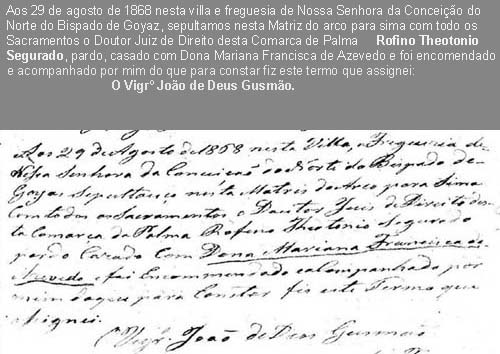 Aos 29 de agosto de 1868 nesta villa e freguesia de Nossa Senhora da Conceição do
Norte do Bispado de Goyaz, sepultamos nesta Matriz do arco para sima com todo os
Sacramentos o Doutor Juiz de Direito desta Comarca de Palma Rofino Theotonio
Segurado, pardo, casado com Dona Mariana Francisca de Azevedo e foi encomendado
e acompanhado por mim do que para constar fiz este termo que assignei:
O Vigrº João de Deus Gusmão.
Aos 29 de Agosto de 1868 nesta Villa, e Freguesia de
Nossa Senhora da Conceicaõ do Norte do Bispado de
Goyas Sepultamos nesta Matris do Arco para Sima
Com todos os Sacramentos o Doutor Juis de Direito des-
ta Comarca da Palma Rofino Theotonio Segurado
pardo Cazado Com Dona Mariana Francisca de
Azevedo e foi Encommendado e acompanhado por
mim do que para Constar fis este Termo que
Asignei.
Vigrº João de Deus Gusmaõ